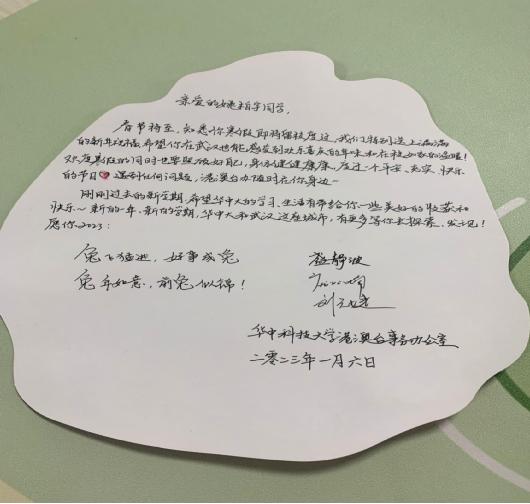 亲爱的姚稍宇同学,
春节将至,知悉你寒假即将留校度过,我们特别送上满满
的新年祝福,希望你在武汉也能感受到欢乐喜庆的年味和在校如家的温暖!
欢度寒假的同时也要照顾好自己,身体健健康康,度过一个平安、充实、快乐
的节日❤遇到任何问题,港澳台办随时在你身边~
刚刚过去的新学期,希望华中大的学习、生活有带给你一些美好的收获和
快乐~新的一年、新的学期,华中大和武汉这座城市,有更多等你去探索、发现!
愿你2023:
兔飞猛进,好事成兔
兔年如意,前兔似锦!
静波
华中科技大学港澳台事务办公室
二〇二三年一月六日